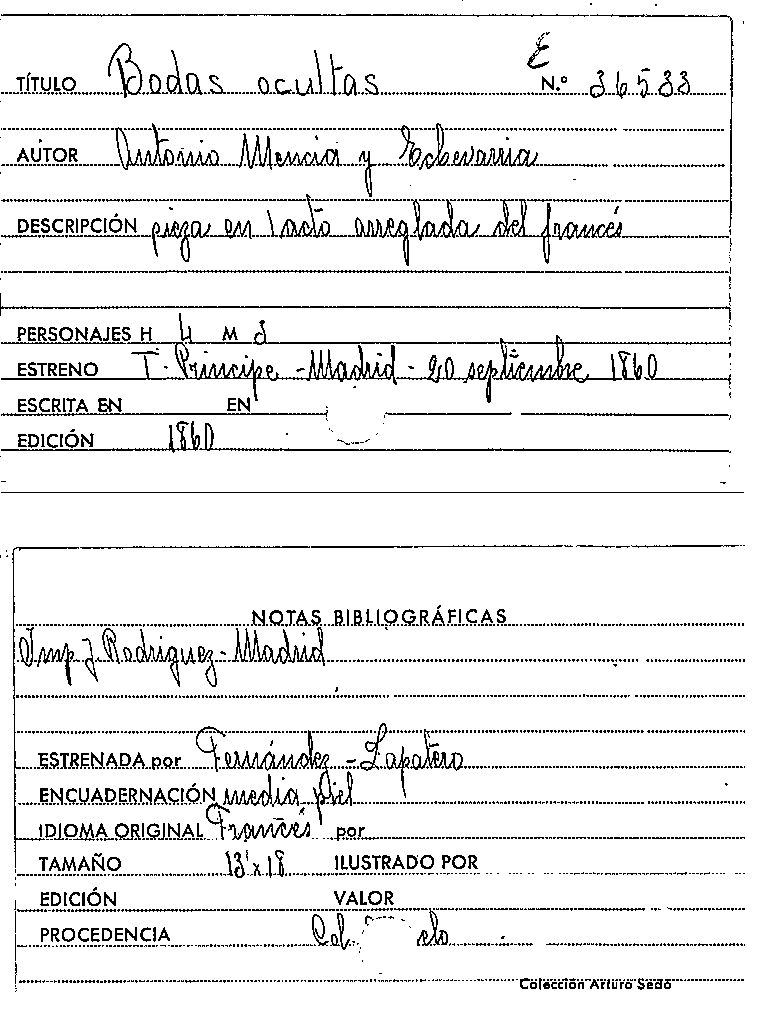 E
TÍTULO Bodas ocultas N.º 36533
AUTOR Antonio Mencia y Echevarria
DESCRIPCIÓN pieza en 1 acto arreglada del francés
PERSONAJES H 4 M 3
ESTRENO T. Principe - Madrid - 20 septiembre 1860
ESCRITA EN EN
EDICIÓN 1860
NOTAS BIBLIOGRÁFICAS
Imp J. Rodriguez - Madrid
ESTRENADA por Fernández - Zapatero
ENCUADERNACIÓN media piel
IDIOMA ORIGINAL Francés por
TAMAÑO 13'x18 ILUSTRADO POR
EDICIÓN VALOR
PROCEDENCIA
Colección Arturo Sedó